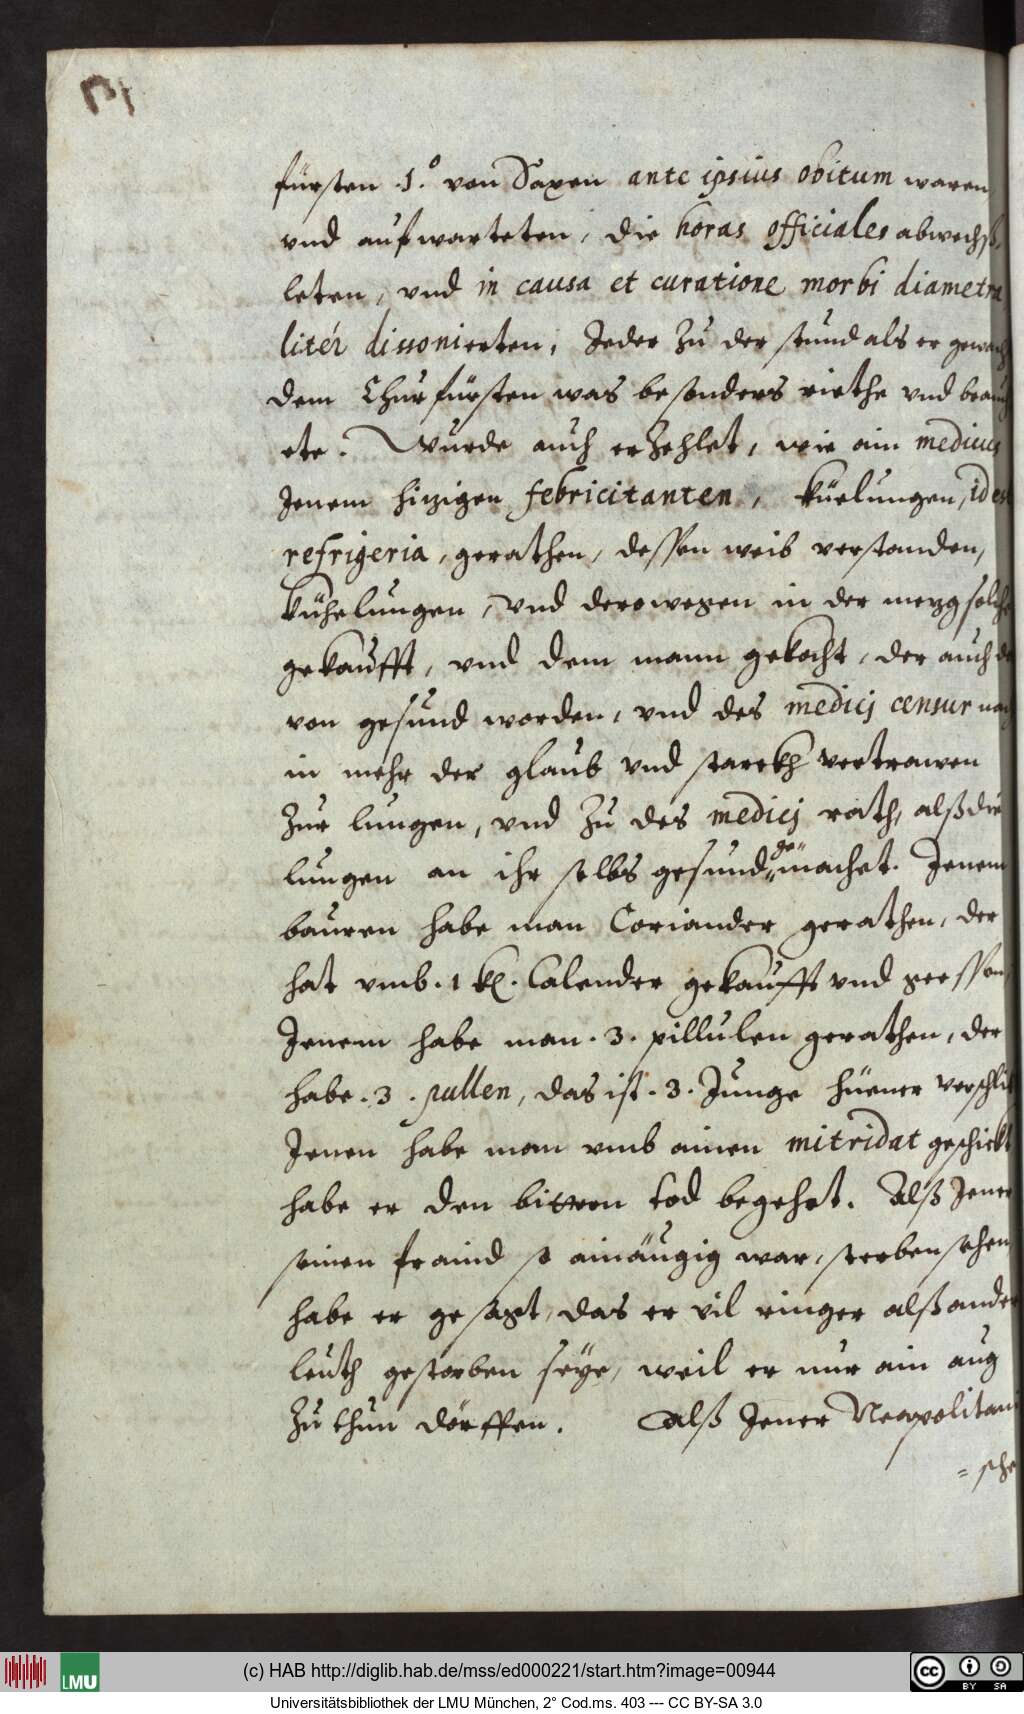 fürsten .J.° von Saxen ante ipsius obitum waren
vnd aufwarteten, die horas officiales abwechß-
leten, vnd in causa et curatione morbi diametra
litér dissonierten, Jeder zu der stund als er gewach
dem Churfürsten was besonders riethe vnd brauch
ete. Wurde auch erzehlet, wie ain medicus
Jenem hizigen febricitanten, küelungen, id est
refrigeria, gerathen, dessen weib verstanden,
kühelungen, vnd derowegen in der mezg solche
gekaufft, vnd dem mann gekocht, der auch da
von gesund worden, vnd des medicj censur nach
in mehr der glaub vnd starckh vertrawen
zur lungen, vnd zu des medicj rath, alß die
lungen an ihr selbs gesund gemachet. Jenem
bauren habe man Coriander gerathen, der
hat vmb .1 kr. Calender gekaufft vnd gessen
Jenem habe man .3. pillulen gerathen, der
habe .3. pullen, das ist .3. Junge hüener verschlikt
Jenen habe man vmb ainen mitridat geschickt
habe er den bittren tod begehrt. Alß Jener
seinen fraind so ainäugig war, sterben sehen
habe er gesagt, das er vil ringer alß andere
leuth gestorben seye, weil er nur ain aug
zu thun dörffen. Alß Jener Neapolitani
=sche
(c) HAB http://diglib.hab.de/mss/ed000221/start.htm?image=00944
LMU
cc BY SA
Universitätsbibliothek der LMU München, 2° Cod.ms. 403 --- CC BY-SA 3.0